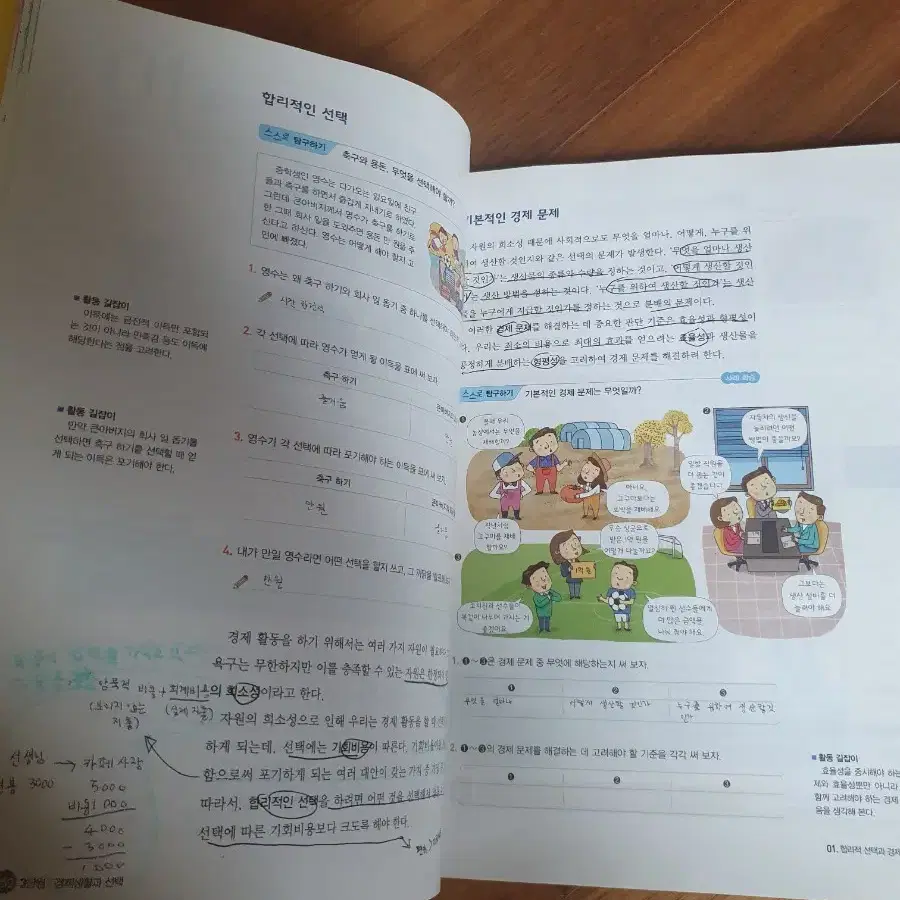 합리적인 선택
스스로 탐구하기
축구와 용돈, 무엇을 선택해야 할까?
중학생인 영수는 다가오는 일요일에 친구
들과 축구를 하면서 즐겁게 지내기로 하였다.
그런데 큰아버지께서 영수가 축구를 하기로
한 그때 회사 일을 도와주면 용돈 만 원을 주
신다고 하신다. 영수는 어떻게 해야 할지 고
민에 빠졌다.
1. 영수는 왜 축구 하기와 회사 일 돕기 중 하나를 선택해야
■ 활동 길잡이
이득에는 금전적 이득만 포함되
는 것이 아니라 만족감 등도 이득에
해당한다는 점을 고려한다.
2. 각 선택에 따라 영수가 얻게 될 이득을 표에 써 보자.
축구 하기
즐거움
■ 활동 길잡이
만약 큰아버지의 회사 일 돕기를
선택하면 축구 하기를 선택할 때 얻
게 되는 이득은 포기해야 한다.
3. 영수가 각 선택에 따라 포기해야 하는 이득을 표에 써 보자.
축구 하기
만 원
4. 내가 만일 영수라면 어떤 선택을 할지 쓰고, 그 까닭을
만원
경제 활동을 하기 위해서는 여러 가지 자원이
욕구는 무한하지만 이를 충족할 수 있는 자원은
의 희소성이라고 한다.
암묵적 비용 + 회계비용
(보이지 않는 지출)
(실제 지출)
자원의 희소성으로 인해 우리는 경제 활동을 할 때
하게 되는데, 선택에는 기회비용이 따른다. 기회비용
함으로써 포기하게 되는 여러 대안이 갖는 가치 중
따라서, 합리적인 선택을 하려면 어떤 것을 선택해서
선택에 따른 기회비용보다 크도록 해야 한다.
선생님 → 카페 사장
3000
5000
비용 1000
4000
- 3000
1000
경제생활과 선택
기본적인 경제 문제
자원의 희소성 때문에 사회적으로도 무엇을 얼마나, 어떻게, 누구를 위
하여 생산할 것인지와 같은 선택의 문제가 발생한다. '무엇을 얼마나 생산
할 것인가'는 생산물의 종류와 수량을 정하는 것이고, '어떻게 생산할 것인
가'는 생산 방법을 정하는 것이다. '누구를 위하여 생산할 것인가'는 생산
물을 누구에게 지급할 것인가를 정하는 것으로 분배의 문제이다.
이러한 경제 문제를 해결하는 데 중요한 판단 기준은 효율성과 형평성이
다. 우리는 최소의 비용으로 최대의 효과를 얻으려는 효율성과 생산물을
공정하게 분배하는 형평성을 고려하여 경제 문제를 해결하려 한다.
스스로 탐구하기
기본적인 경제 문제는 무엇일까?
사례 학습
❶
올해 우리 농장에서는 무엇을 재배할까?
아니요, 고구마보다는 호박을 재배해요.
작년처럼 고구마를 재배할까요?
❷
자동차의 생산을 늘리려면 어떤 방법이 좋을까요?
일할 직원을 더 뽑는 것이 좋겠습니다!
그보다는 생산 설비를 더 늘려야 해요.
❸
우승 상금으로 받은 1억 원을 어떻게 나눌까요?
1억 원
열심히 뛴 선수들에게 더 많은 금액을 나눠 줘야 해요.
1. ❶~❸은 경제 문제 중 무엇에 해당하는지 써 보자.
❶ ❷ ❸
무엇을 얼마나
어떻게 생산할 것인가
누구를 위하여 생산할것인가
2. ❶~❸의 경제 문제를 해결하는 데 고려해야 할 기준을 각각 써 보자.
❶ ❷ ❸
■ 활동 길잡이
효율성을 중시해야 하는
제와 효율성뿐만 아니라
함께 고려해야 하는 경제
음을 생각해 본다.
01. 합리적 선택과 경제